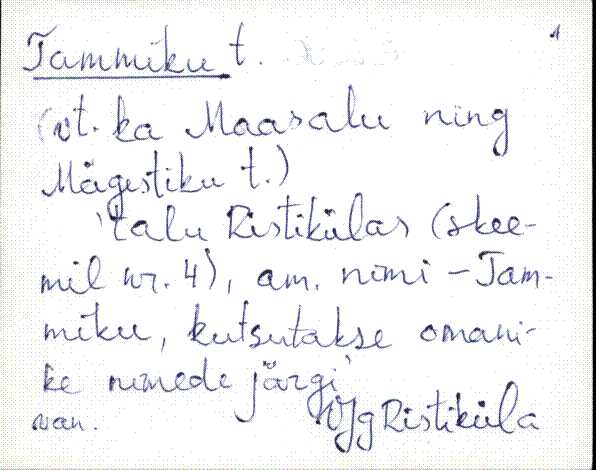 1
Tammiku t.
(vt. ka Maasalu ning
Mägestiku t.)
'talu Ristikülas (skee-
mil nr. 4), am. nimi – Tam-
miku, kutsutakse omani-
ke nimede järgi'
van. VJg Ristiküla